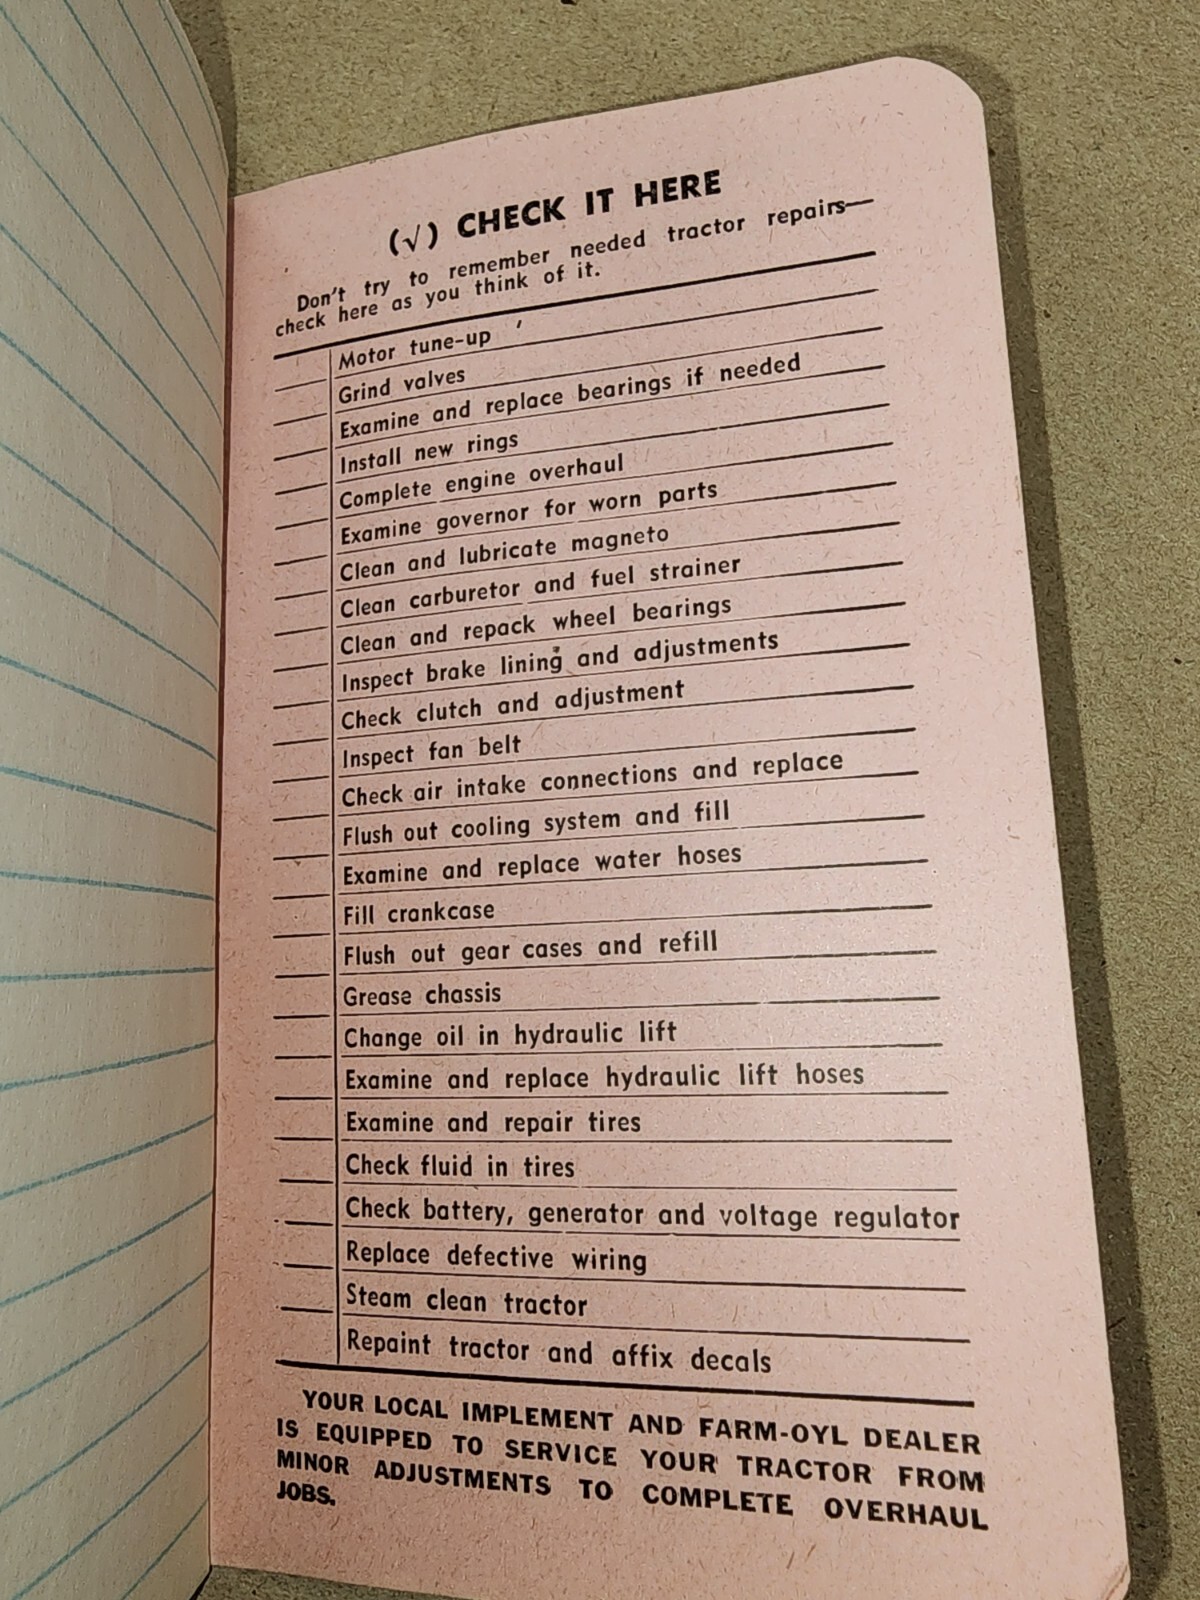 (√) CHECK IT HERE
Don't try to remember needed tractor repairs—
check here as you think of it.
Motor tune-up
Grind valves
Examine and replace bearings if needed
Install new rings
Complete engine overhaul
Examine governor for worn parts
Clean and lubricate magneto
Clean carburetor and fuel strainer
Clean and repack wheel bearings
Inspect brake lining and adjustments
Check clutch and adjustment
Inspect fan belt
Check air intake connections and replace
Flush out cooling system and fill
Examine and replace water hoses
Fill crankcase
Flush out gear cases and refill
Grease chassis
Change oil in hydraulic lift
Examine and replace hydraulic lift hoses
Examine and repair tires
Check fluid in tires
Check battery, generator and voltage regulator
Replace defective wiring
Steam clean tractor
Repaint tractor and affix decals
YOUR LOCAL IMPLEMENT AND FARM-OYL DEALER
IS EQUIPPED TO SERVICE YOUR TRACTOR FROM
MINOR ADJUSTMENTS TO COMPLETE OVERHAUL
JOBS.